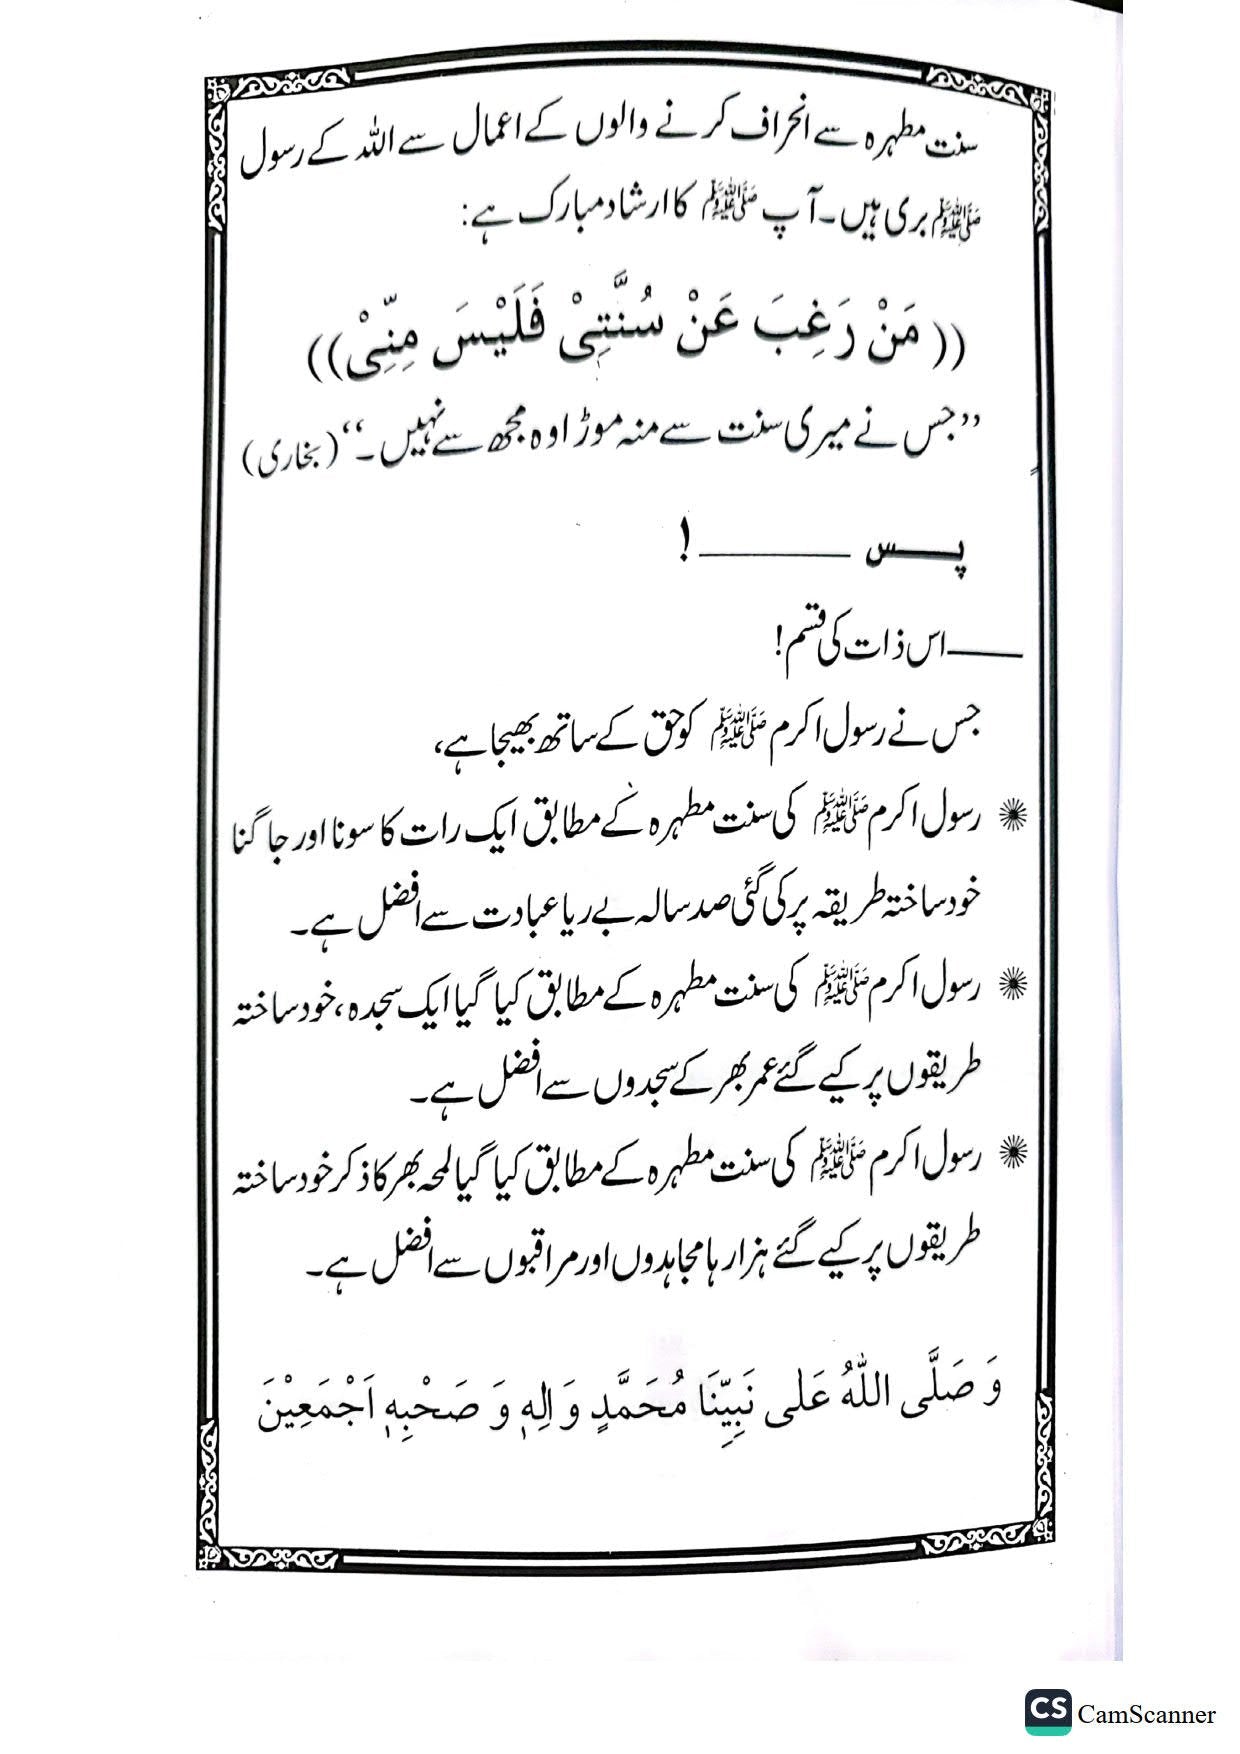 سنت مطہرہ سے انحراف کرنے والوں کے اعمال سے اللہ کے رسول
ﷺ بری ہیں۔ آپ ﷺ کا ارشاد مبارک ہے:
(( مَنْ رَغِبَ عَنْ سُنَّتِیْ فَلَیْسَ مِنِّیْ))
’’جس نے میری سنت سے منہ موڑا وہ مجھ سے نہیں۔‘‘ (بخاری)
پس ـــــــــــــ !
ـــــــ اس ذات کی قسم!
جس نے رسول اکرم ﷺ کو حق کے ساتھ بھیجا ہے،
رسول اکرم ﷺ کی سنت مطہرہ کے مطابق ایک رات کا سونا اور جاگنا
خود ساختہ طریقہ پر کی گئی صد سالہ بے ریا عبادت سے افضل ہے۔
رسول اکرم ﷺ کی سنت مطہرہ کے مطابق کیا گیا ایک سجدہ، خود ساختہ
طریقوں پر کیے گئے عمر بھر کے سجدوں سے افضل ہے۔
رسول اکرم ﷺ کی سنت مطہرہ کے مطابق کیا گیا لمحہ بھر کا ذکر خود ساختہ
طریقوں پر کیے گئے ہزار ہا مجاہدوں اور مراقبوں سے افضل ہے۔
وَ صَلَّی اللّٰہُ عَلٰی نَبِیِّنَا مُحَمَّدٍ وَ اٰلِہٖ وَ صَحْبِہٖ اَجْمَعِیْنَ
CS CamScanner